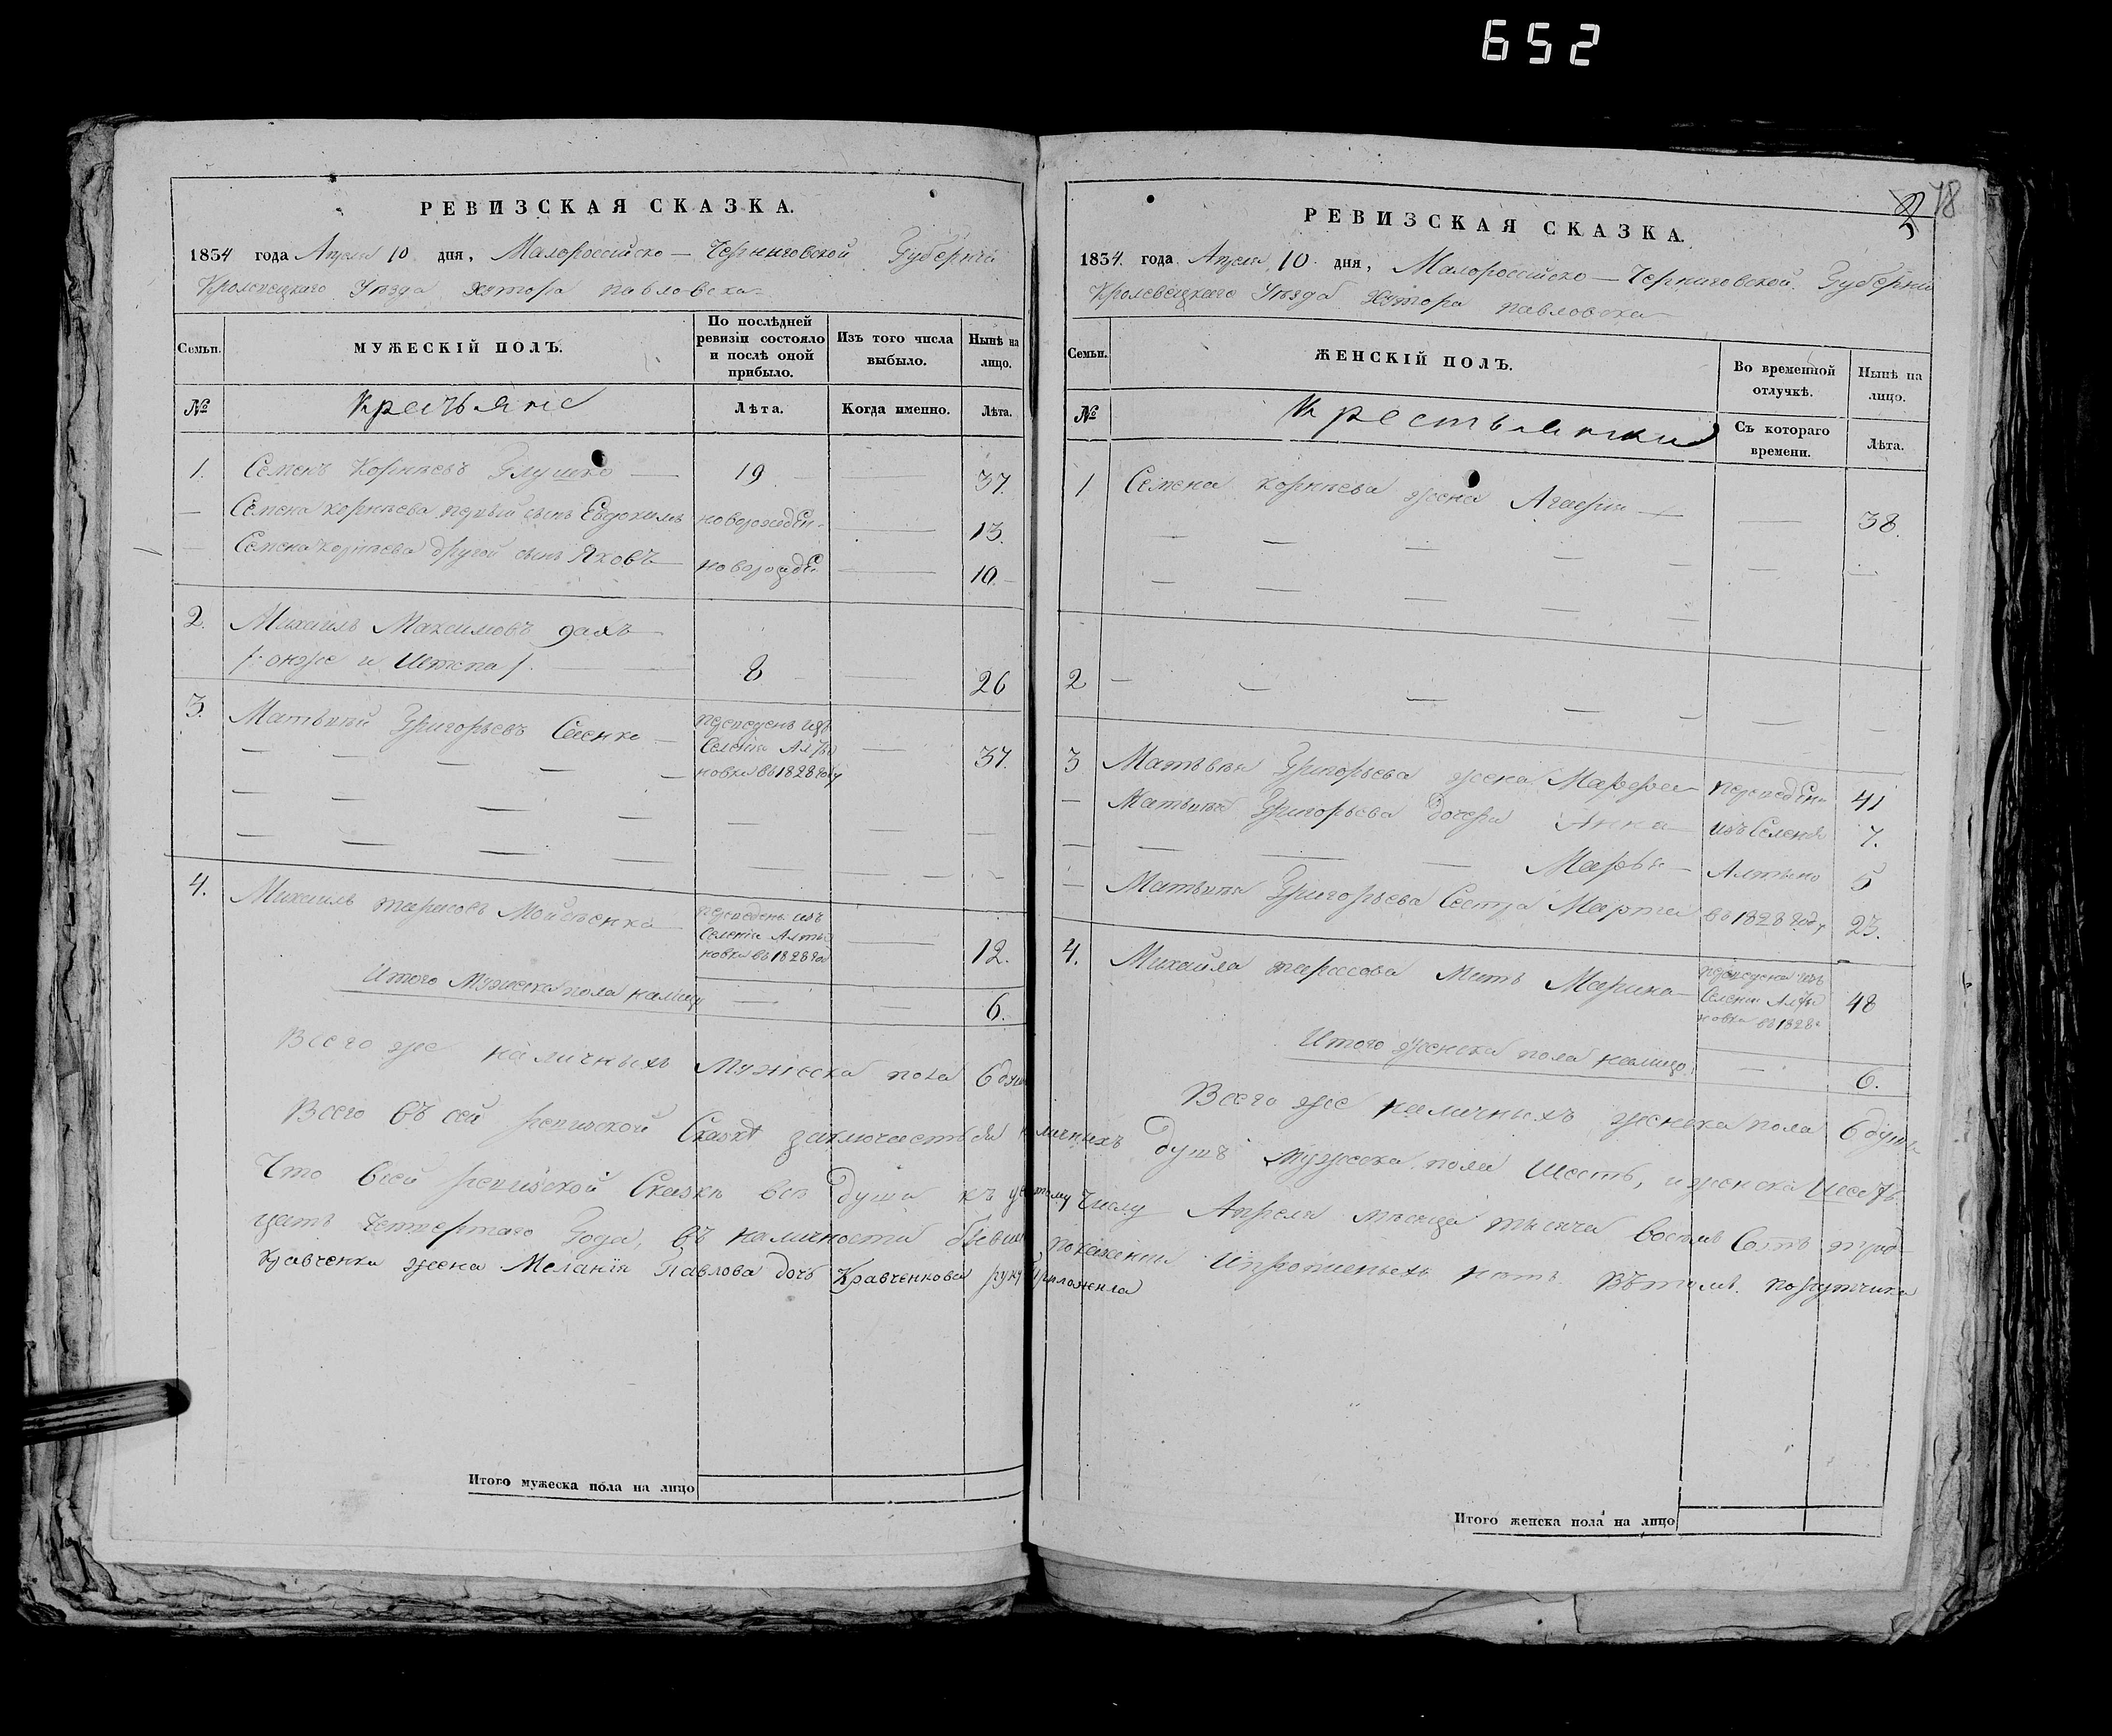 652
РЕВИЗСКАЯ СКАЗКА.
1834 года Апреля 10 дня, Малороссийско — Черниговской Губернии
Кролевецкаго Уезда хутора павловска
Семьи.
МУЖЕСКІЙ ПОЛЪ.
По послѣдней ревизіи состояло и послѣ оной прибыло.
Изъ того числа выбыло.
Нынѣ на лицо.
№
Лѣта.
Когда именно.
Лѣта.
1. Семенъ Корнѣевъ Глушко — 19 — 37.
— Семена корнѣева первый сынъ Евдокимъ новорожден — 13.
— Семена корнѣева другой сынъ Яковъ — новорожден — 10
2. Михаилъ Максимовъ
/: онже и / — 8 — 26
3. Матвѣй Григорьевъ — переведенъ изъ
Селенія Алты
новка въ 1828 году — 37.
4. Михаилъ тарасовъ Мойсѣенко переведенъ изъ
Селенія Алты
новка въ 1828 го — 12.
Итого Мужеска пола налицо — 6.
Всего же наличныхъ Мужеска пола 6 душ
РЕВИЗСКАЯ СКАЗКА.
1834. года Апреля 10 дня, Малороссийско — Черниговской Губернии
Кролевецкаго Уезда Хутора павловска
78
Семьи.
ЖЕНСКІЙ ПОЛЪ.
Во временной отлучкѣ.
Нынѣ на лицо.
№
Крестьянки
Съ котораго времени.
Лѣта.
1 Семена корнѣева жена Агафия — 38.
2
3 Матвѣя Григорьева жена Марфа переведены 41
— Матвѣя Григорьева дочери Анна изъ Селенія 7.
— Марья — Алтыно 5
— Матвѣя Григорьева Сестра Марта въ 1828 году 23.
4. Михаила тарасова Мать Марина переведена изъ
Селенія Алты
новка въ 1828 — 48
Итого женска пола налицо — 6.
Всего же наличныхъ женска пола 6 душ
Всего въ сей ревизской Сказке заключается наличныхъ душъ мужеска пола Шесть, и женска Шесть
Что в сей ревизской Сказке все души къ Числу Апреля месяца тысяча восемь Сотъ трид
цать Четвертаго Года, въ наличности бывши показаны И прописныхъ нетъ. Въ томъ порутчика
Кравченка жена Меланія Павлова дочь Кравченкова руку приложила
Итого мужеска пола на лицо
Итого женска пола на лицо